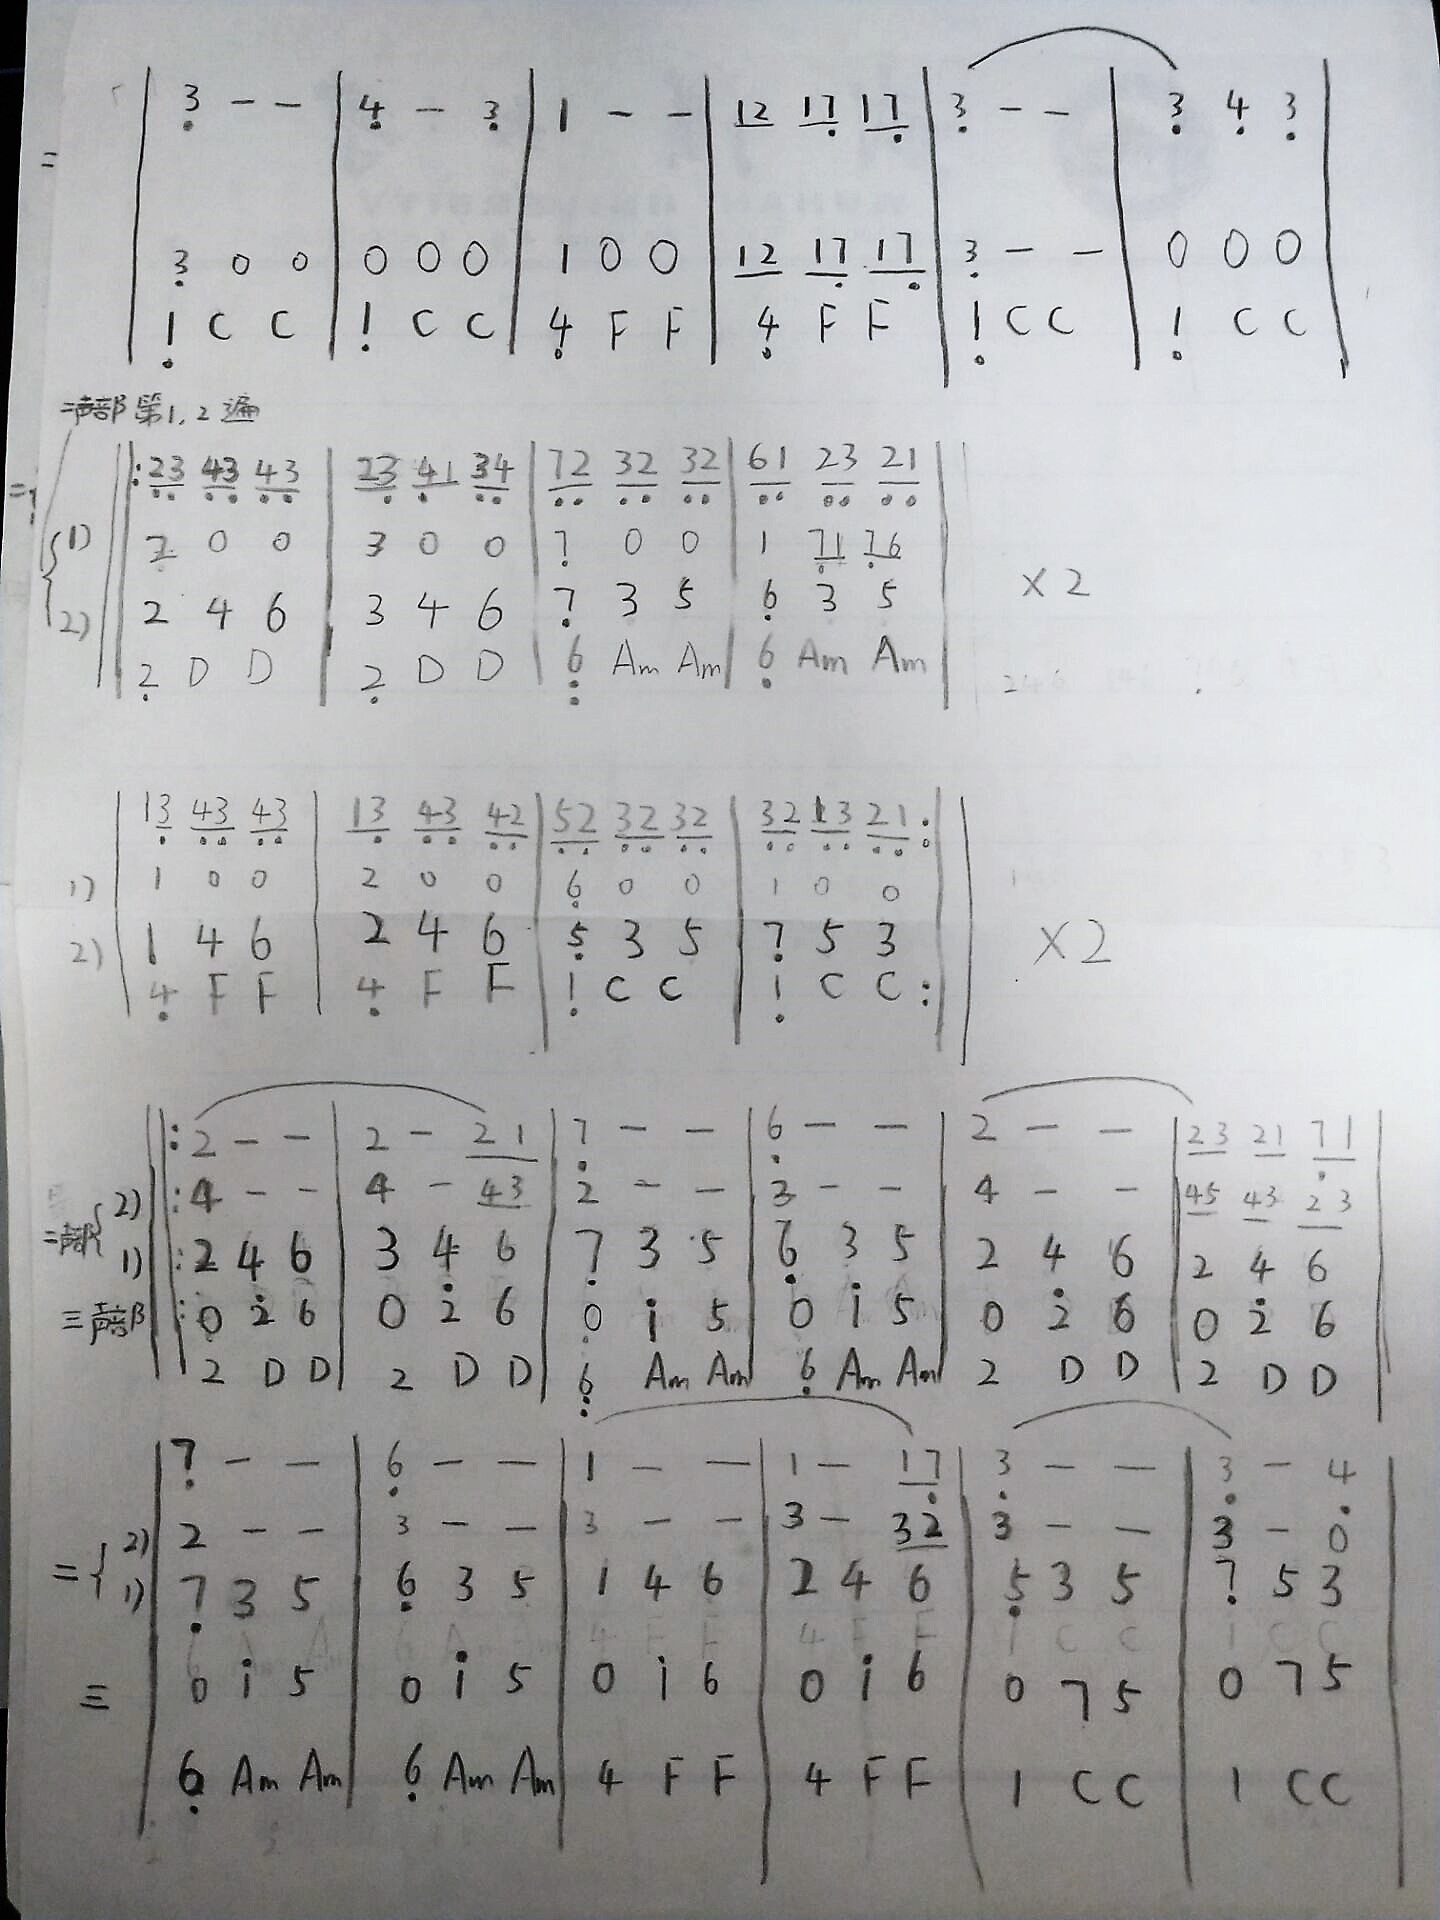 | 3̣ - - | 4̣ - 3̣ | 1 - - | 12 17̣ 17̣ | 3̣ - - | 3̣ 4̣ 3̣ |
=
| 3̣ 0 0 | 0 0 0 | 1 0 0 | 12 17̣ 17̣ | 3̣ - - | 0 0 0 |
| 1̣ C C | 1̣ C C | 4̣ F F | 4̣ F F | 1̣ C C | 1̣ C C |
二声部第1,2遍
‖: 2̣3̣ 4̣3̣ 4̣3̣ | 2̣3̣ 4̣1 3̣4̣ | 7̣2̣ 3̣2̣ 3̣2̣ | 6̣1̣ 2̣3̣ 2̣1̣ |
1) 2 0 0 | 3 0 0 | 7̣ 0 0 | 1 7̣1 7̣6 |
2) 2 4 6 | 3 4 6 | 7̣ 3 5 | 6̣ 3 5 |
2̣ D D | 2̣ D D | 6̣ Am Am | 6̣ Am Am |
×2
| 13̣ 4̣3̣ 4̣3̣ | 13̣ 4̣3̣ 4̣2̣ | 5̣2̣ 3̣2̣ 3̣2̣ | 3̣2̣ 1̣3̣ 2̣1̣ :|
1) | 1 0 0 | 2 0 0 | 6̣ 0 0 | 1 0 0 |
2) | 1 4 6 | 2 4 6 | 5̣ 3 5 | 7̣ 5 3 |
| 4̣ F F | 4̣ F F | 1̣ C C | 1̣ C C :|
×2
‖: 2 - - | 2 - 21 | 7̣ - - | 6̣ - - | 2 - - | 23 21 7̣1 |
二声部 { 2) : 4 - - | 4 - 43 | 2 - - | 3 - - | 4 - - | 45 43 23 |
1) : 2 4 6 | 3 4 6 | 7̣ 3 5 | 6̣ 3 5 | 2 4 6 | 2 4 6 |
三声部 : 0 2̇ 6 | 0 2̇ 6 | 0 1̇ 5 | 0 1̇ 5 | 0 2̇ 6 | 0 2̇ 6 |
2 D D | 2 D D | 6̣ Am Am | 6̣ Am Am | 2 D D | 2 D D |
| 7̣ - - | 6̣ - - | 1 - - | 1 - 17̣ | 3̣ - - | 3̣ - 4̣ |
= { 2) | 2 - - | 3 - - | 3 - - | 3 - 32 | 3 - - | 3 - 0 |
1) | 7̣ 3 5 | 6̣ 3 5 | 1 4 6 | 2 4 6 | 5̣ 3 5 | 7̣ 5 3 |
三 | 0 1̇ 5 | 0 1̇ 5 | 0 1̇ 6 | 0 1̇ 6 | 0 7 5 | 0 7 5 |
| 6̣ Am Am | 6̣ Am Am | 4 F F | 4 F F | 1 C C | 1 C C |